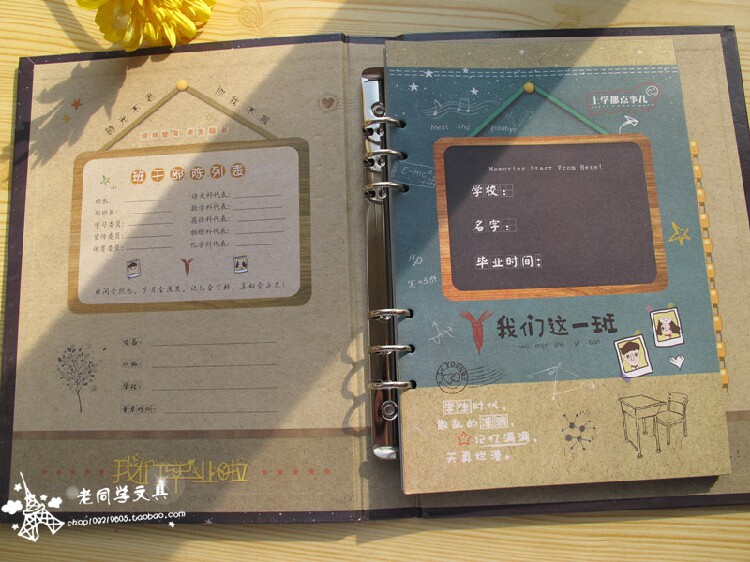 时光不老
你我不散
班干部阵列表
班长:
副班长:
学习委员:
宣传委员:
体育委员:
语文科代表:
数学科代表:
英语科代表:
物理科代表:
化学科代表:
姓名:
班级:
学校:
毕业时间:
我们毕业啦
老同学文具
shop109219605.taobao.com
上学那点事儿
Meet and goodbye
E=mc²
H₂O
Memories Start From Here!
学校:
名字:
毕业时间:
我们这一班
wo men zhe yi ban
学生时代,
散乱的课桌,
记忆满满,
天真烂漫。